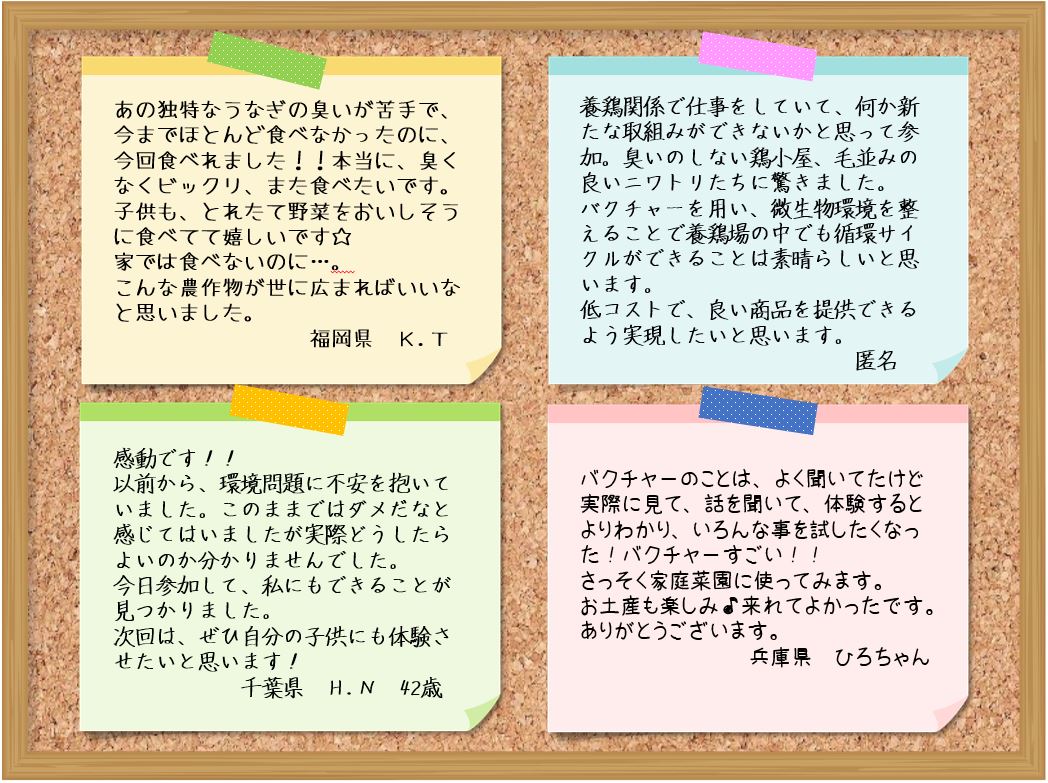 あの独特なうなぎの臭いが苦手で、
今までほとんど食べなかったのに、
今回食べれました！！本当に、臭く
なくビックリ、また食べたいです。
子供も、とれたて野菜をおいしそう
に食べてて嬉しいです☆
家では食べないのに…。
こんな農作物が世に広まればいいな
と思いました。
福岡県　K.T
養鶏関係で仕事をしていて、何か新
たな取組みができないかと思って参
加。臭いのしない鶏小屋、毛並みの
良いニワトリたちに驚きました。
バクチャーを用い、微生物環境を整
えることで養鶏場の中でも循環サイ
クルができることは素晴らしいと思
います。
低コストで、良い商品を提供できる
よう実現したいと思います。
匿名
感動です！！
以前から、環境問題に不安を抱いて
いました。このままではダメだなと
感じてはいましたが実際どうしたら
よいのか分かりませんでした。
今日参加して、私にもできることが
見つかりました。
次回は、ぜひ自分の子供にも体験さ
せたいと思います！
千葉県　H.N　42歳
バクチャーのことは、よく聞いてたけど
実際に見て、話を聞いて、体験すると
よりわかり、いろんな事を試したくなっ
た！バクチャーすごい！！
さっそく家庭菜園に使ってみます。
お土産も楽しみ♪来れてよかったです。
ありがとうございます。
兵庫県　ひろちゃん